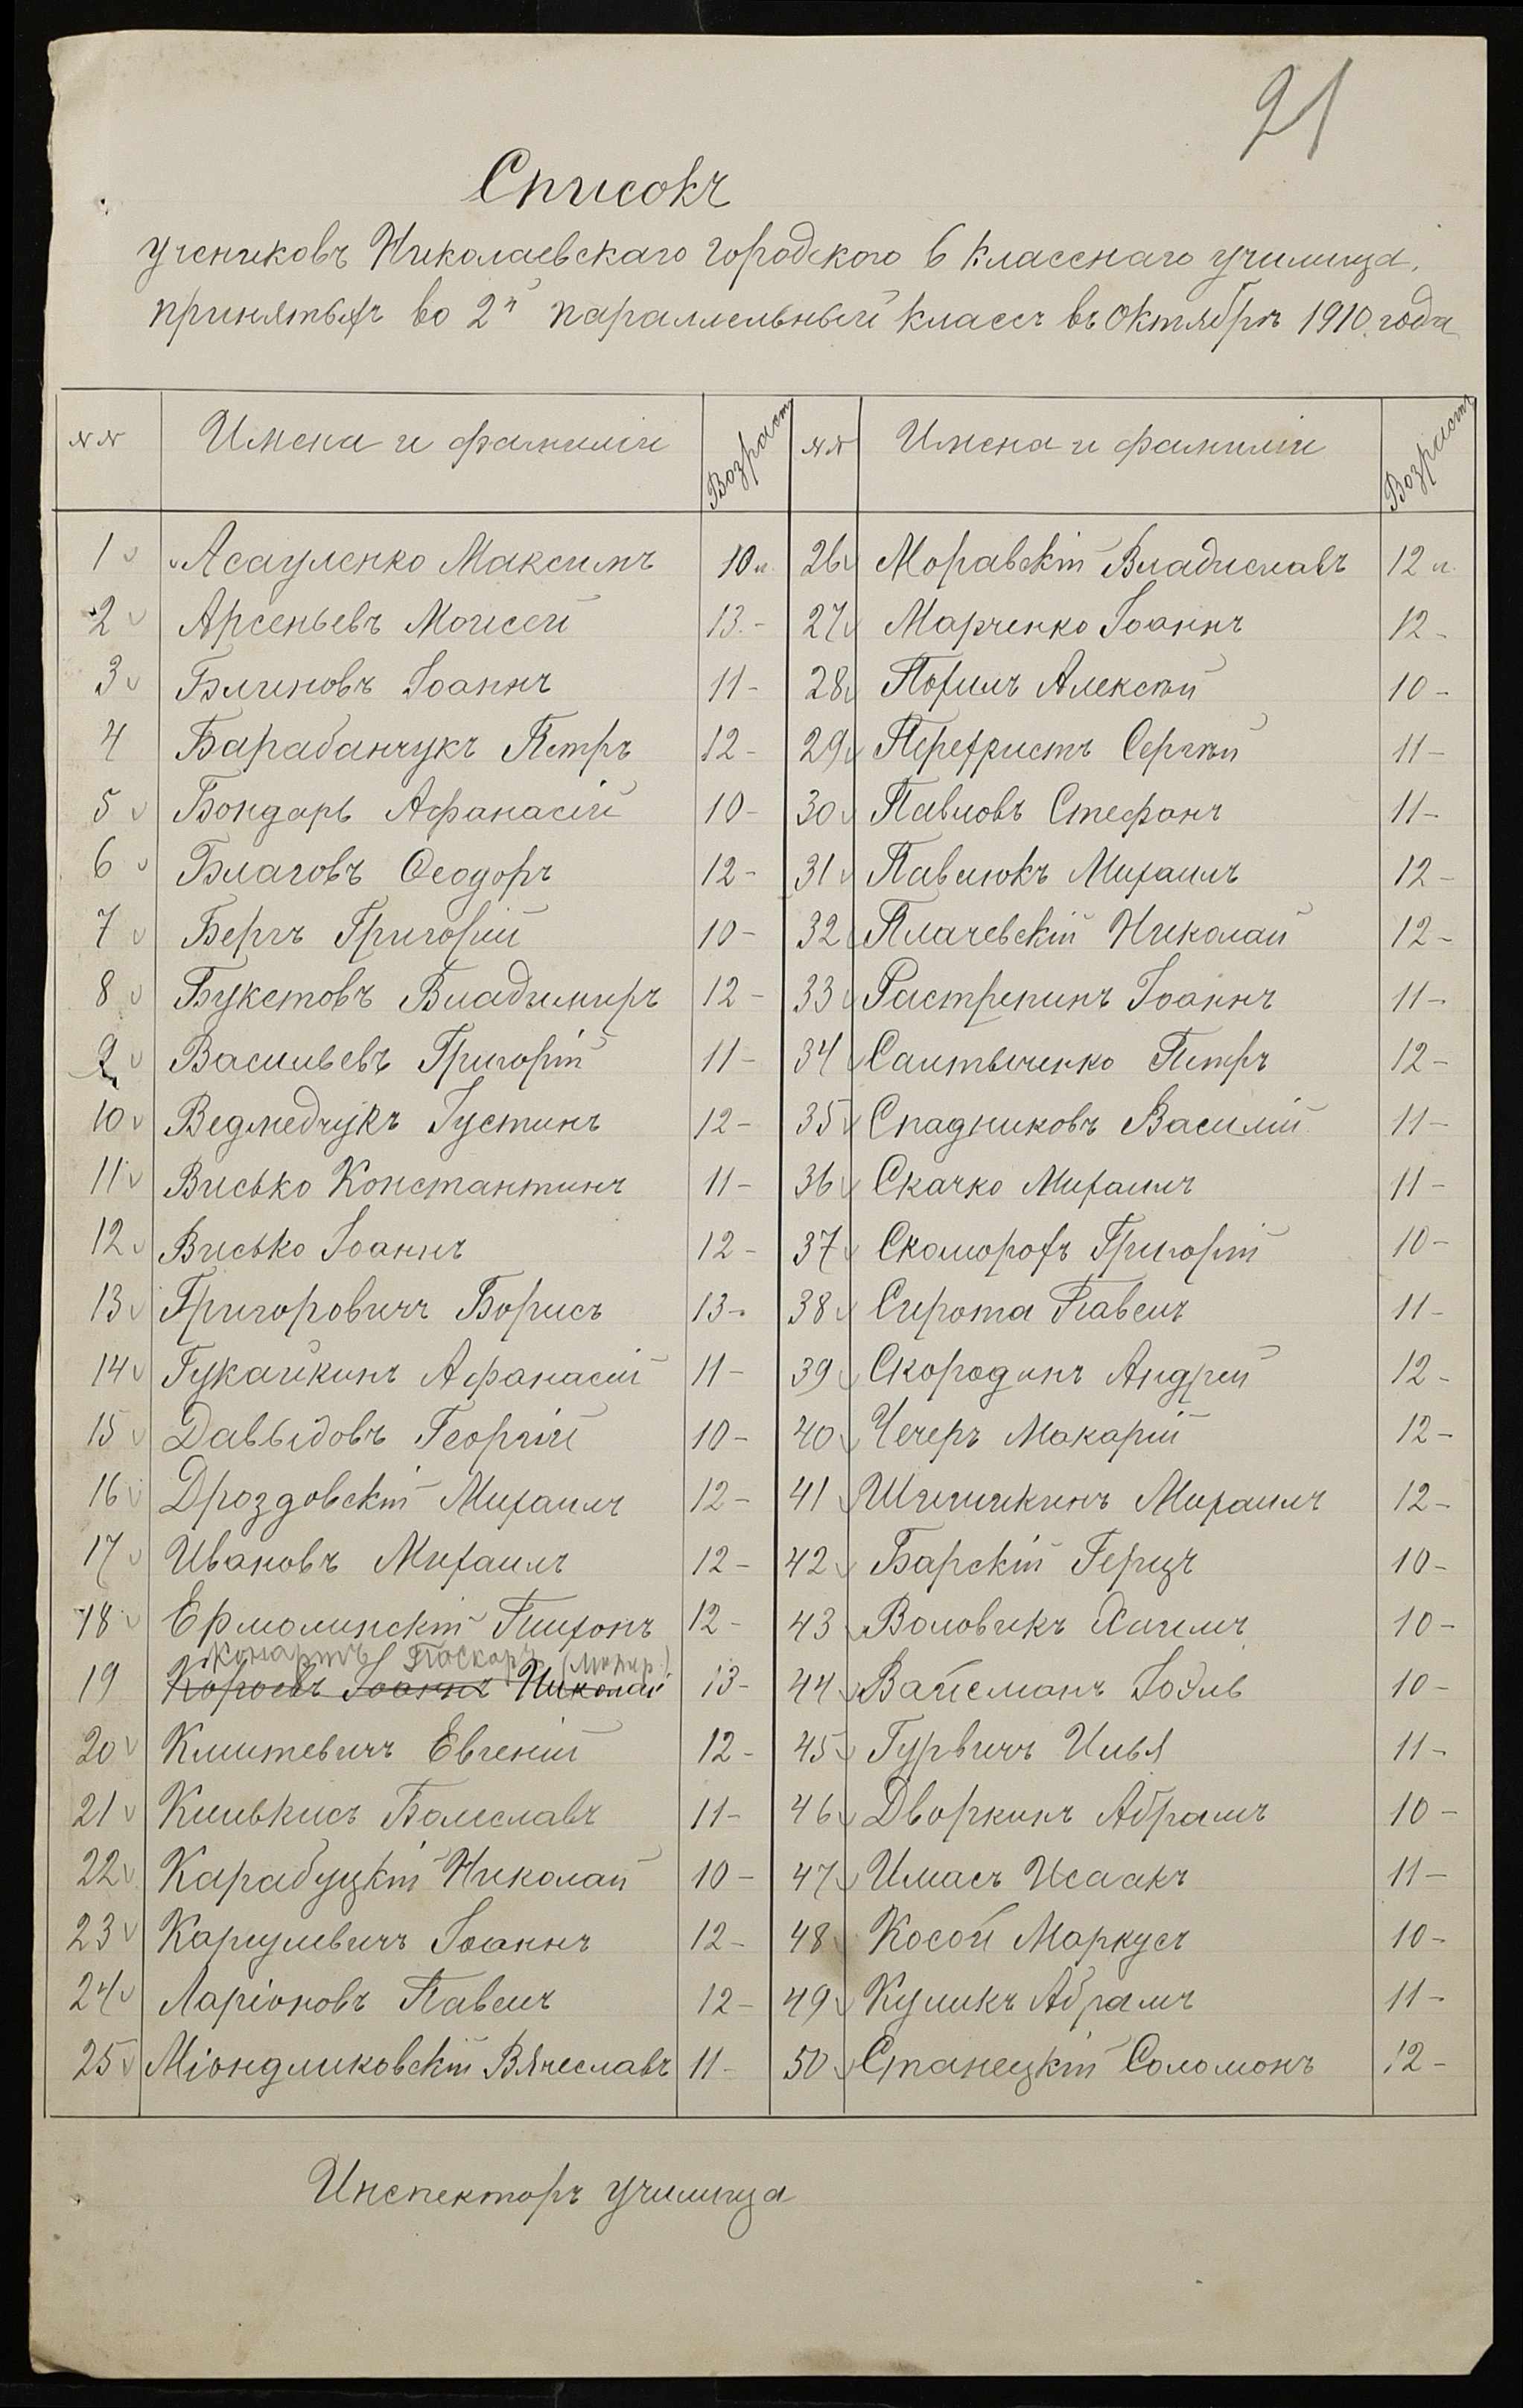 21
Списокъ
учениковъ Николаевскаго городского 6 классного училища,
принятыхъ во 2й параллельный классъ въ Октябрѣ 1910 года
№№ Имена и фамиліи Возрастъ №№ Имена и фамиліи Возрастъ
1 Асауленко Максимъ 10 л. 26 Моравскій Владиславъ 12 л.
2 Арсеньевъ Моисей 13 - 27 Марченко Іоаннъ 12 -
3 Блиновъ Іоаннъ 11 - 28 Похилъ Алексѣй 10 -
4 Барабанчукъ Петръ 12 - 29 Перехристъ Сергѣй 11 -
5 Бондарь Афанасій 10 - 30 Павловъ Стефанъ 11 -
6 Благовъ Ѳеодоръ 12 - 31 Павлюкъ Михаилъ 12 -
7 Бергъ Григорій 10 - 32 Плачевскій Николай 12 -
8 Букетовъ Владимиръ 12 - 33 Растрепинъ Іоаннъ 11 -
9 Васильевъ Григорій 11 - 34 Петръ 12 -
10 Ведмедчукъ Іустинъ 12 - 35 Спадниковъ Василій 11 -
11 Висько Константинъ 11 - 36 Скачко Михаилъ 11 -
12 Висько Іоаннъ 12 - 37 Скоморохъ Григорій 10 -
13 Григоровичъ Борисъ 13 - 38 Сирота Павелъ 11 -
14 Гукайкинъ Афанасій 11 - 39 Скородинъ Андрей 12 -
15 Давыдовъ Георгій 10 - 40 Чечеръ Макарій 12 -
16 Дроздовскій Михаилъ 12 - 41 Шишкинъ Михаилъ 12 -
17 Ивановъ Михаилъ 12 - 42 Барскій Герцъ 10 -
18 Ермолинскій Тихонъ 12 - 43 Воловикъ Хиилъ 10 -
19 Іоаннъ Николай 13 - 44 Вайсманъ Іоэль 10 -
20 Климтевичъ Евгеній 12 - 45 Гурвичъ Илья 11 -
21 Килькисъ Болеславъ 11 - 46 Дворкинъ Абрамъ 10 -
22 Карабуцкій Николай 10 - 47 Имасъ Исаакъ 11 -
23 Каргулевичъ Іоаннъ 12 - 48 Косой Маркусъ 10 -
24 Ларіоновъ Павелъ 12 - 49 Куликъ Абрамъ 11 -
25 Міондликовскій Вячеславъ 11 - 50 Станецкій Соломонъ 12 -
Инспекторъ училища